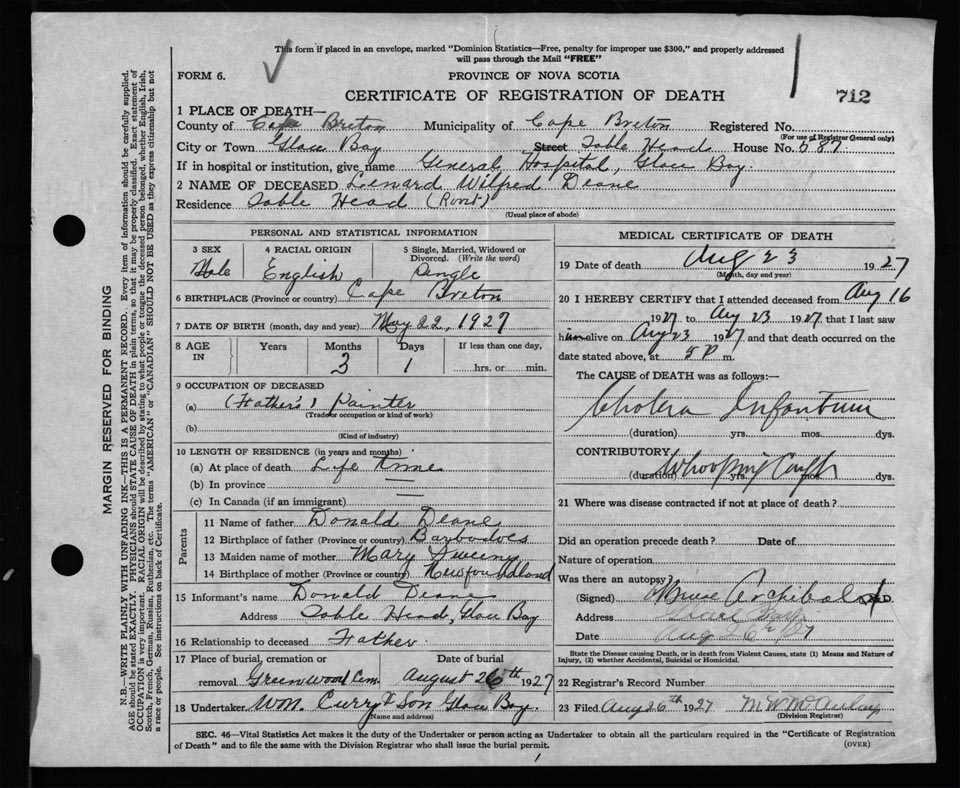 This form if placed in an envelope, marked "Dominion Statistics—Free, penalty for improper use $300," and properly addressed
will pass through the Mail "FREE"
FORM 6. PROVINCE OF NOVA SCOTIA
CERTIFICATE OF REGISTRATION OF DEATH 712
1 PLACE OF DEATH—
County of Cape Breton Municipality of Cape Breton Registered No.
(For use of Registrar General only)
City or Town Glace Bay Street Table Head House No. 587
If in hospital or institution, give name General Hospital, Glace Bay.
2 NAME OF DECEASED Lenard Wilfred Deane
Residence Table Head (Rent)
(Usual place of abode)
PERSONAL AND STATISTICAL INFORMATION
3 SEX 4 RACIAL ORIGIN 5 Single, Married, Widowed or
Divorced. (Write the word)
Male English Single
6 BIRTHPLACE (Province or country) Cape Breton
7 DATE OF BIRTH (month, day and year) May 22, 1927
8 AGE IN Years Months Days If less than one day,
3 1 hrs. or min.
9 OCCUPATION OF DECEASED
(a) (Father's) Painter
(Trade or occupation or kind of work)
(b)
(Kind of industry)
10 LENGTH OF RESIDENCE (in years and months)
(a) At place of death Life time
(b) In province —
(c) In Canada (if an immigrant) —
Parents
11 Name of father Donald Deane
12 Birthplace of father (Province or country) Barbadoes
13 Maiden name of mother Mary Sweeny
14 Birthplace of mother (Province or country) Newfoundland
15 Informant's name Donald Deane
Address Table Head, Glace Bay
16 Relationship to deceased Father
17 Place of burial, cremation or Date of burial
removal Greenwood Cem. August 26th 1927
18 Undertaker Wm. Curry & Son Glace Bay.
(Name and address)
MEDICAL CERTIFICATE OF DEATH
19 Date of death Aug 23 1927
(Month, day and year)
20 I HEREBY CERTIFY that I attended deceased from Aug 16
1927 to Aug 23 1927 that I last saw
him alive on Aug 23 1927 and that death occurred on the
date stated above, at 5 P m.
The CAUSE of DEATH was as follows:—
Cholera Infantum
(duration) yrs. mos. dys.
CONTRIBUTORY
Whooping Cough
(duration) yrs. mos. dys.
21 Where was disease contracted if not at place of death?
Did an operation precede death? Date of
Nature of operation
Was there an autopsy?
(Signed) Archibald M.D.
Address Glace Bay
Date Aug 26th/27
State the Disease causing Death, or in death from Violent Causes, state (1) Means and Nature of
Injury, (2) whether Accidental, Suicidal or Homicidal.
22 Registrar's Record Number
23 Filed Aug 26th 1927 M. W. McAulay
(Division Registrar)
SEC. 46—Vital Statistics Act makes it the duty of the Undertaker or person acting as Undertaker to obtain all the particulars required in the "Certificate of Registration
of Death" and to file the same with the Division Registrar who shall issue the burial permit. (OVER)
MARGIN RESERVED FOR BINDING
N.B.—WRITE PLAINLY WITH UNFADING INK—THIS IS A PERMANENT RECORD. Every item of information should be carefully supplied.
AGE should be stated EXACTLY. PHYSICIANS should STATE CAUSE OF DEATH in plain terms, so that it may be properly classified. Exact statement of
OCCUPATION is very important. RACIAL ORIGIN will be described by stating to what people or tongue the deceased person belonged, whether English, Irish,
Scotch, French, German, Russian, Ruthenian, etc. The terms "AMERICAN" or "CANADIAN" SHOULD NOT BE USED as they express citizenship but not
a race or people. See instructions on back of Certificate.